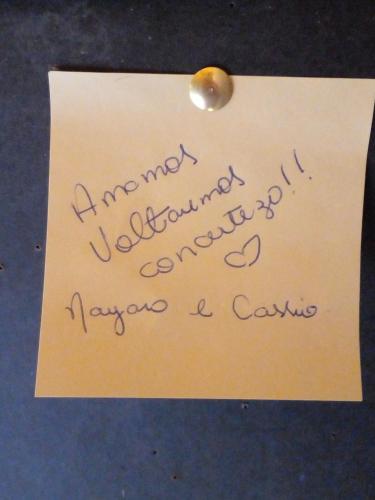 Amamos
Voltaremos
concerteza!!
Mayara e Cassio